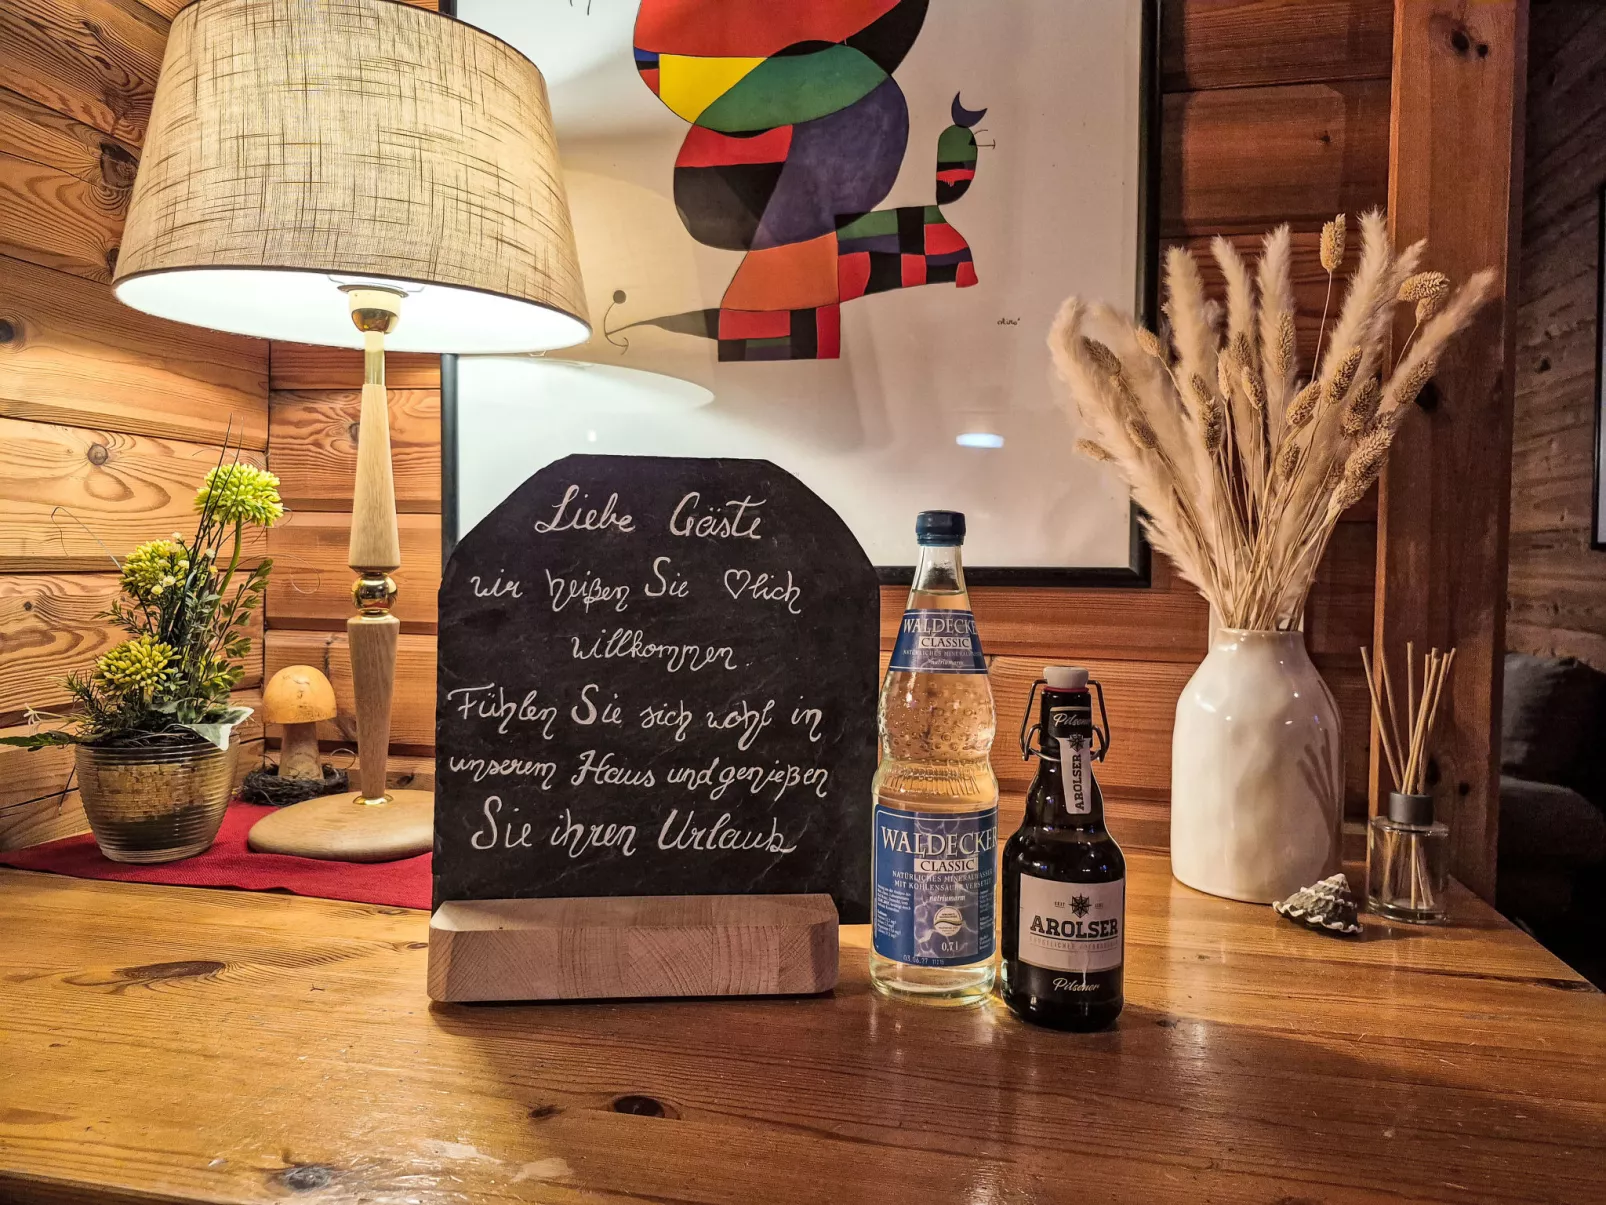 Liebe Gäste
wir heißen Sie ♡lich
willkommen.
Fühlen Sie sich wohl in
unserem Haus und genießen
Sie ihren Urlaub
WALDECKER
CLASSIC
NATÜRLICHES MINERALWASSER
WALDECKER
CLASSIC
NATÜRLICHES MINERALWASSER
MIT KOHLENSÄURE VERSETZT
natriumarm
0,7 l
Pilsener
AROLSER
AROLSER
Pilsener
Miró